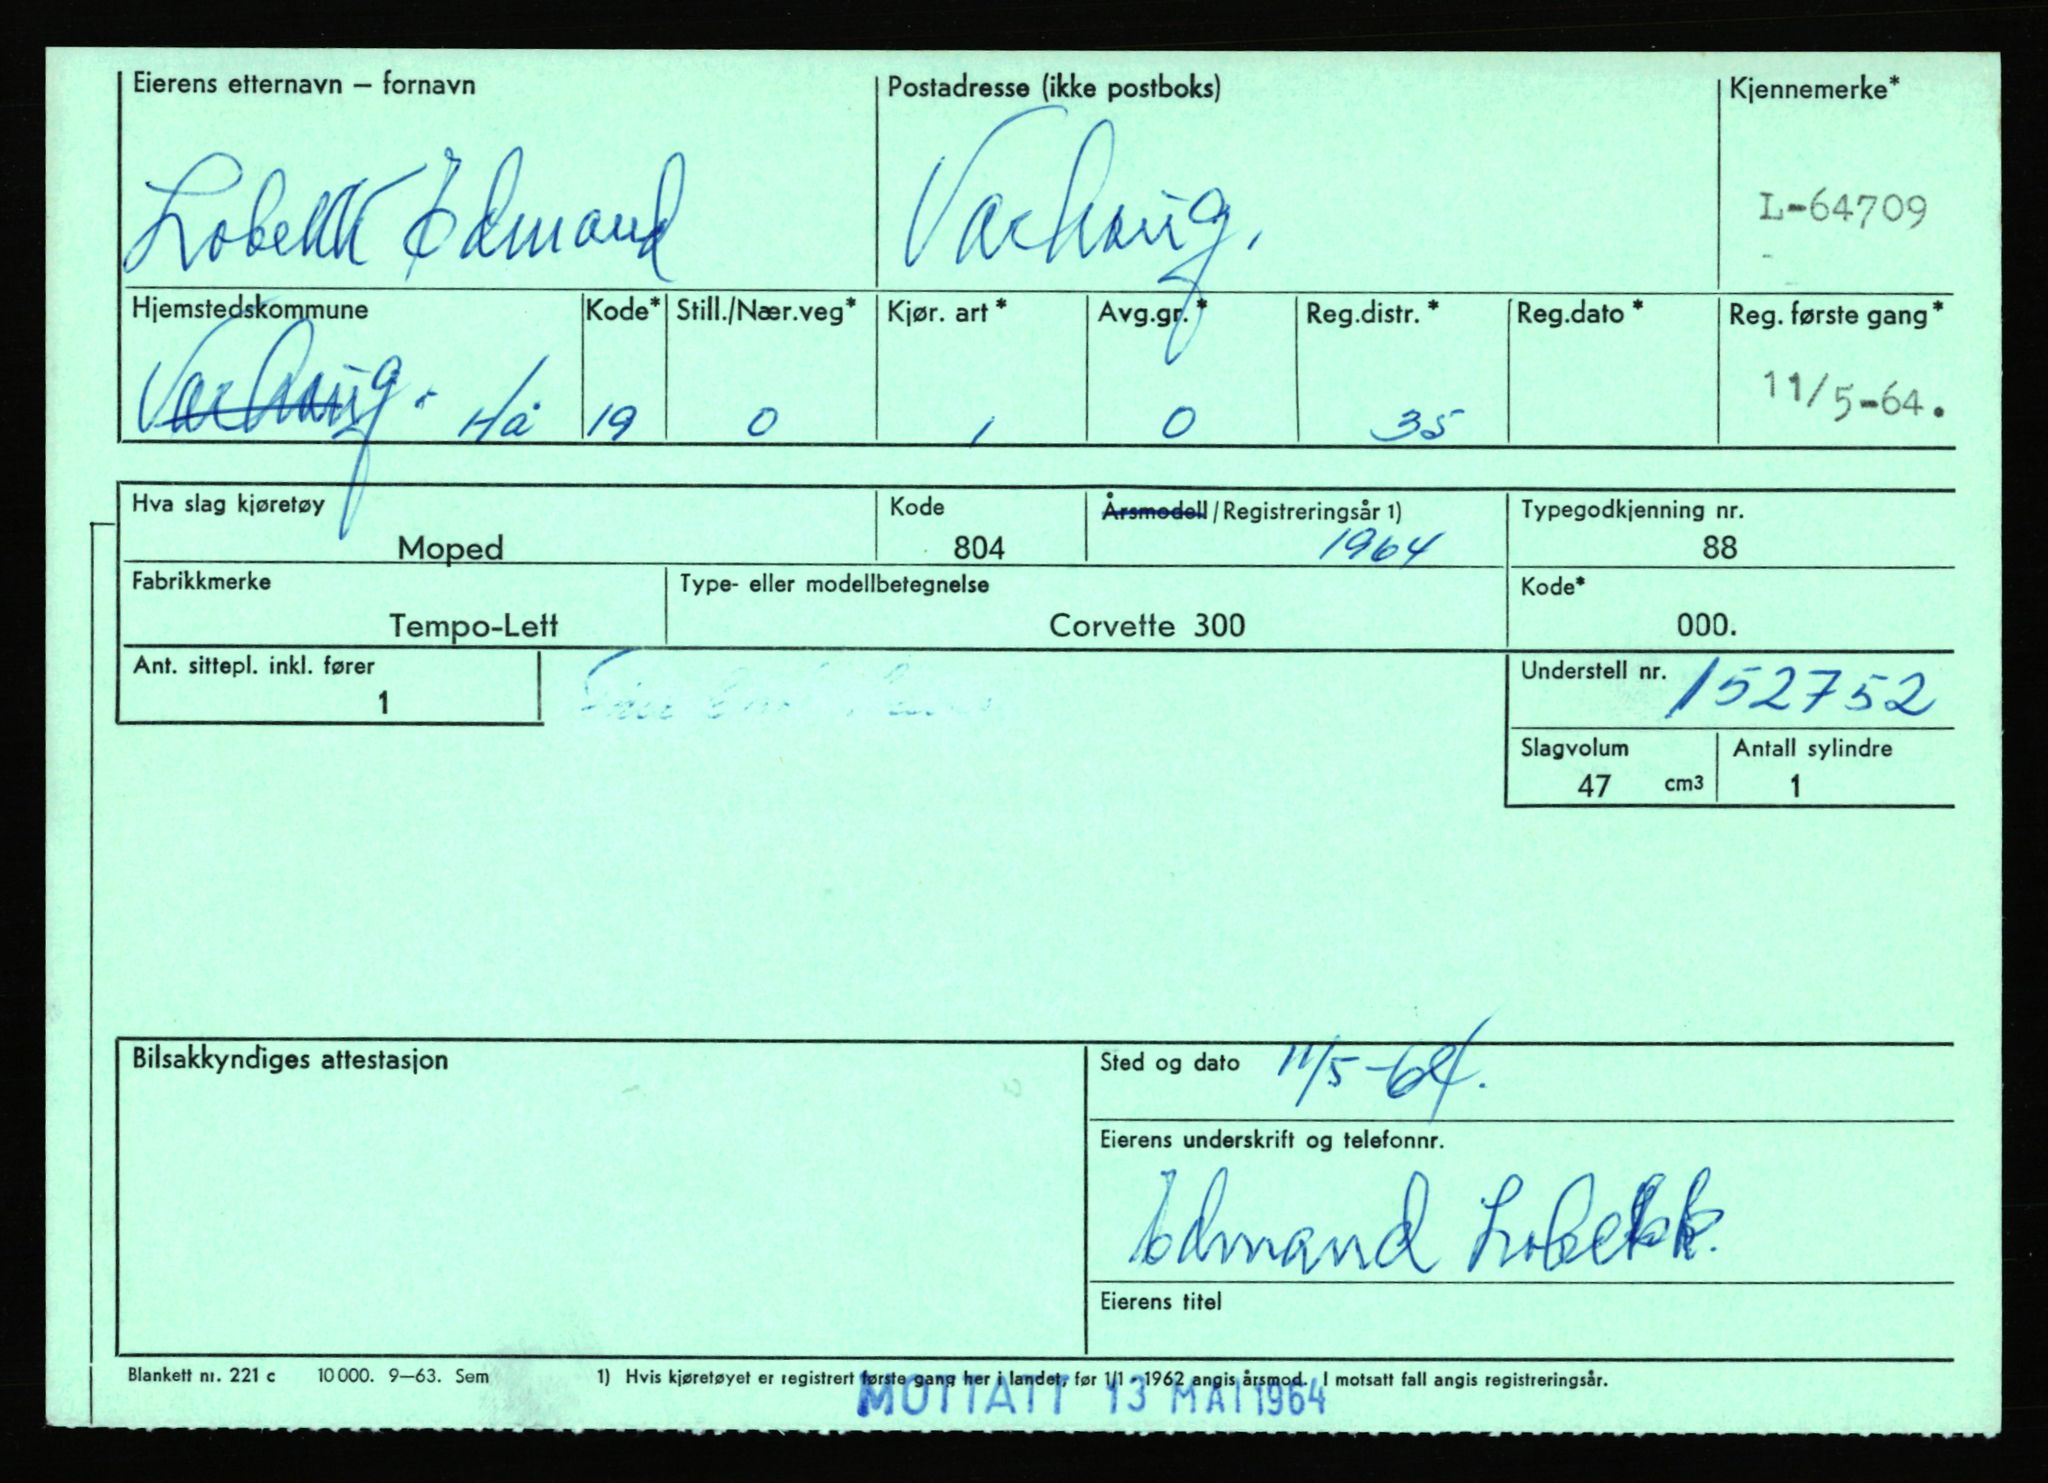 Eierens etternavn – fornavn
Postadresse (ikke postboks)
Kjennemerke*
Lobekk Edmand
Varhaug.
L-64709
Hjemstedskommune
Kode*
Still./Nær.veg*
Kjør. art*
Avg.gr.*
Reg.distr.*
Reg.dato*
Reg. første gang*
Varhaug. Hå
19
0
1
0
35
11/5-64.
Hva slag kjøretøy
Kode
Årsmodell/Registreringsår 1)
Typegodkjenning nr.
Moped
804
1964
88
Fabrikkmerke
Type- eller modellbetegnelse
Kode*
Tempo-Lett
Corvette 300
000.
Ant. sittepl. inkl. fører
1
Understell nr. 152752
Slagvolum
Antall sylindre
47 cm3
1
Bilsakkyndiges attestasjon
Sted og dato 11/5-64.
Eierens underskrift og telefonnr.
Edmand Lobekk.
Eierens titel
Blankett nr. 221 c 10 000. 9–63. Sem
1) Hvis kjøretøyet er registrert første gang her i landet, før 1/1 - 1962 angis årsmod. I motsatt fall angis registreringsår.
MOTTATT 13 MAI 1964